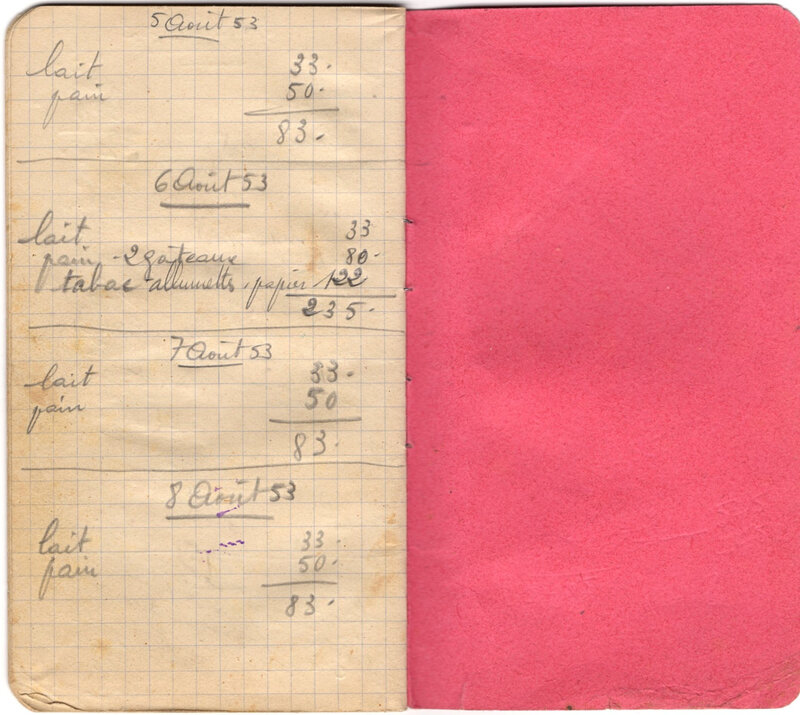 5 Août 53
lait 33.
pain 50.
83.
6 Août 53
lait 33
pain - 2 gâteaux 80.
tabac - allumetts, papier 122
235.
7 Août 53
lait 33.
pain 50
83.
8 Août 53
lait 33.
pain 50.
83.